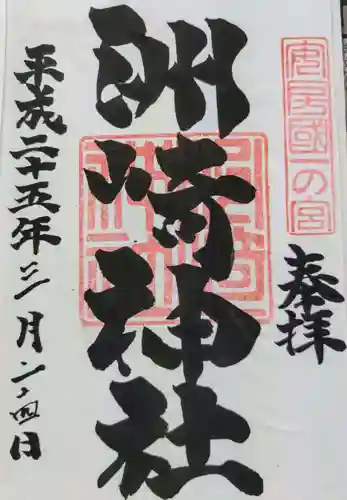 安房國一の宮
奉拝
洲崎神社
洲崎神社
平成二十五年三月二十四日